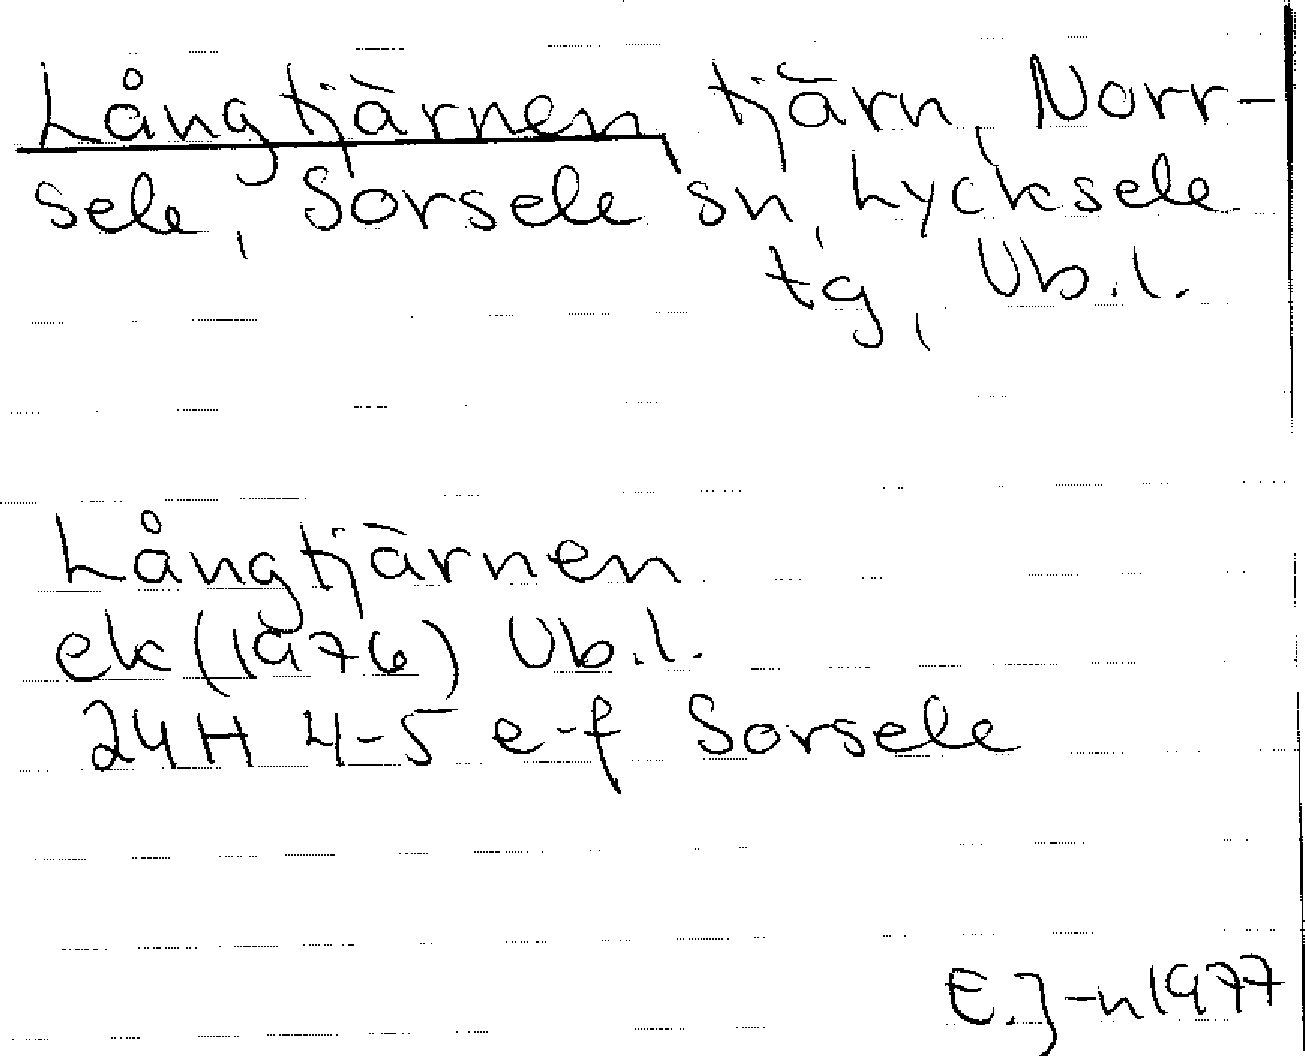 Långtjärnen, tjärn, Norr-
sele, Sorsele sn, Lycksele
tg, Vb.l.
Långtjärnen
ek (1976) Vb.l.
24H 4-5 e-f Sorsele
E.J-n 1977